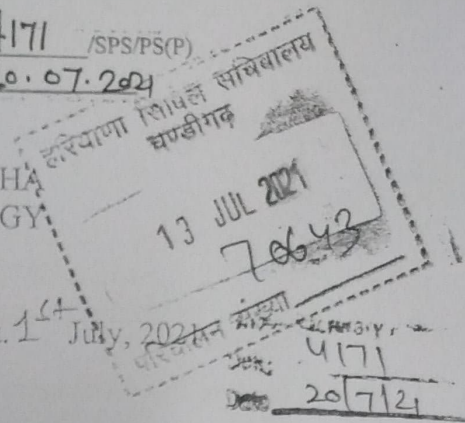 4171 /SPS/PS(P)
20.07.2021
हरियाणा सिविल सचिवालय
चण्डीगढ़
HA
GY
13 JUL 2021
70643
1st July, 2021
परिचालन संख्या
4171
Date 20/7/21